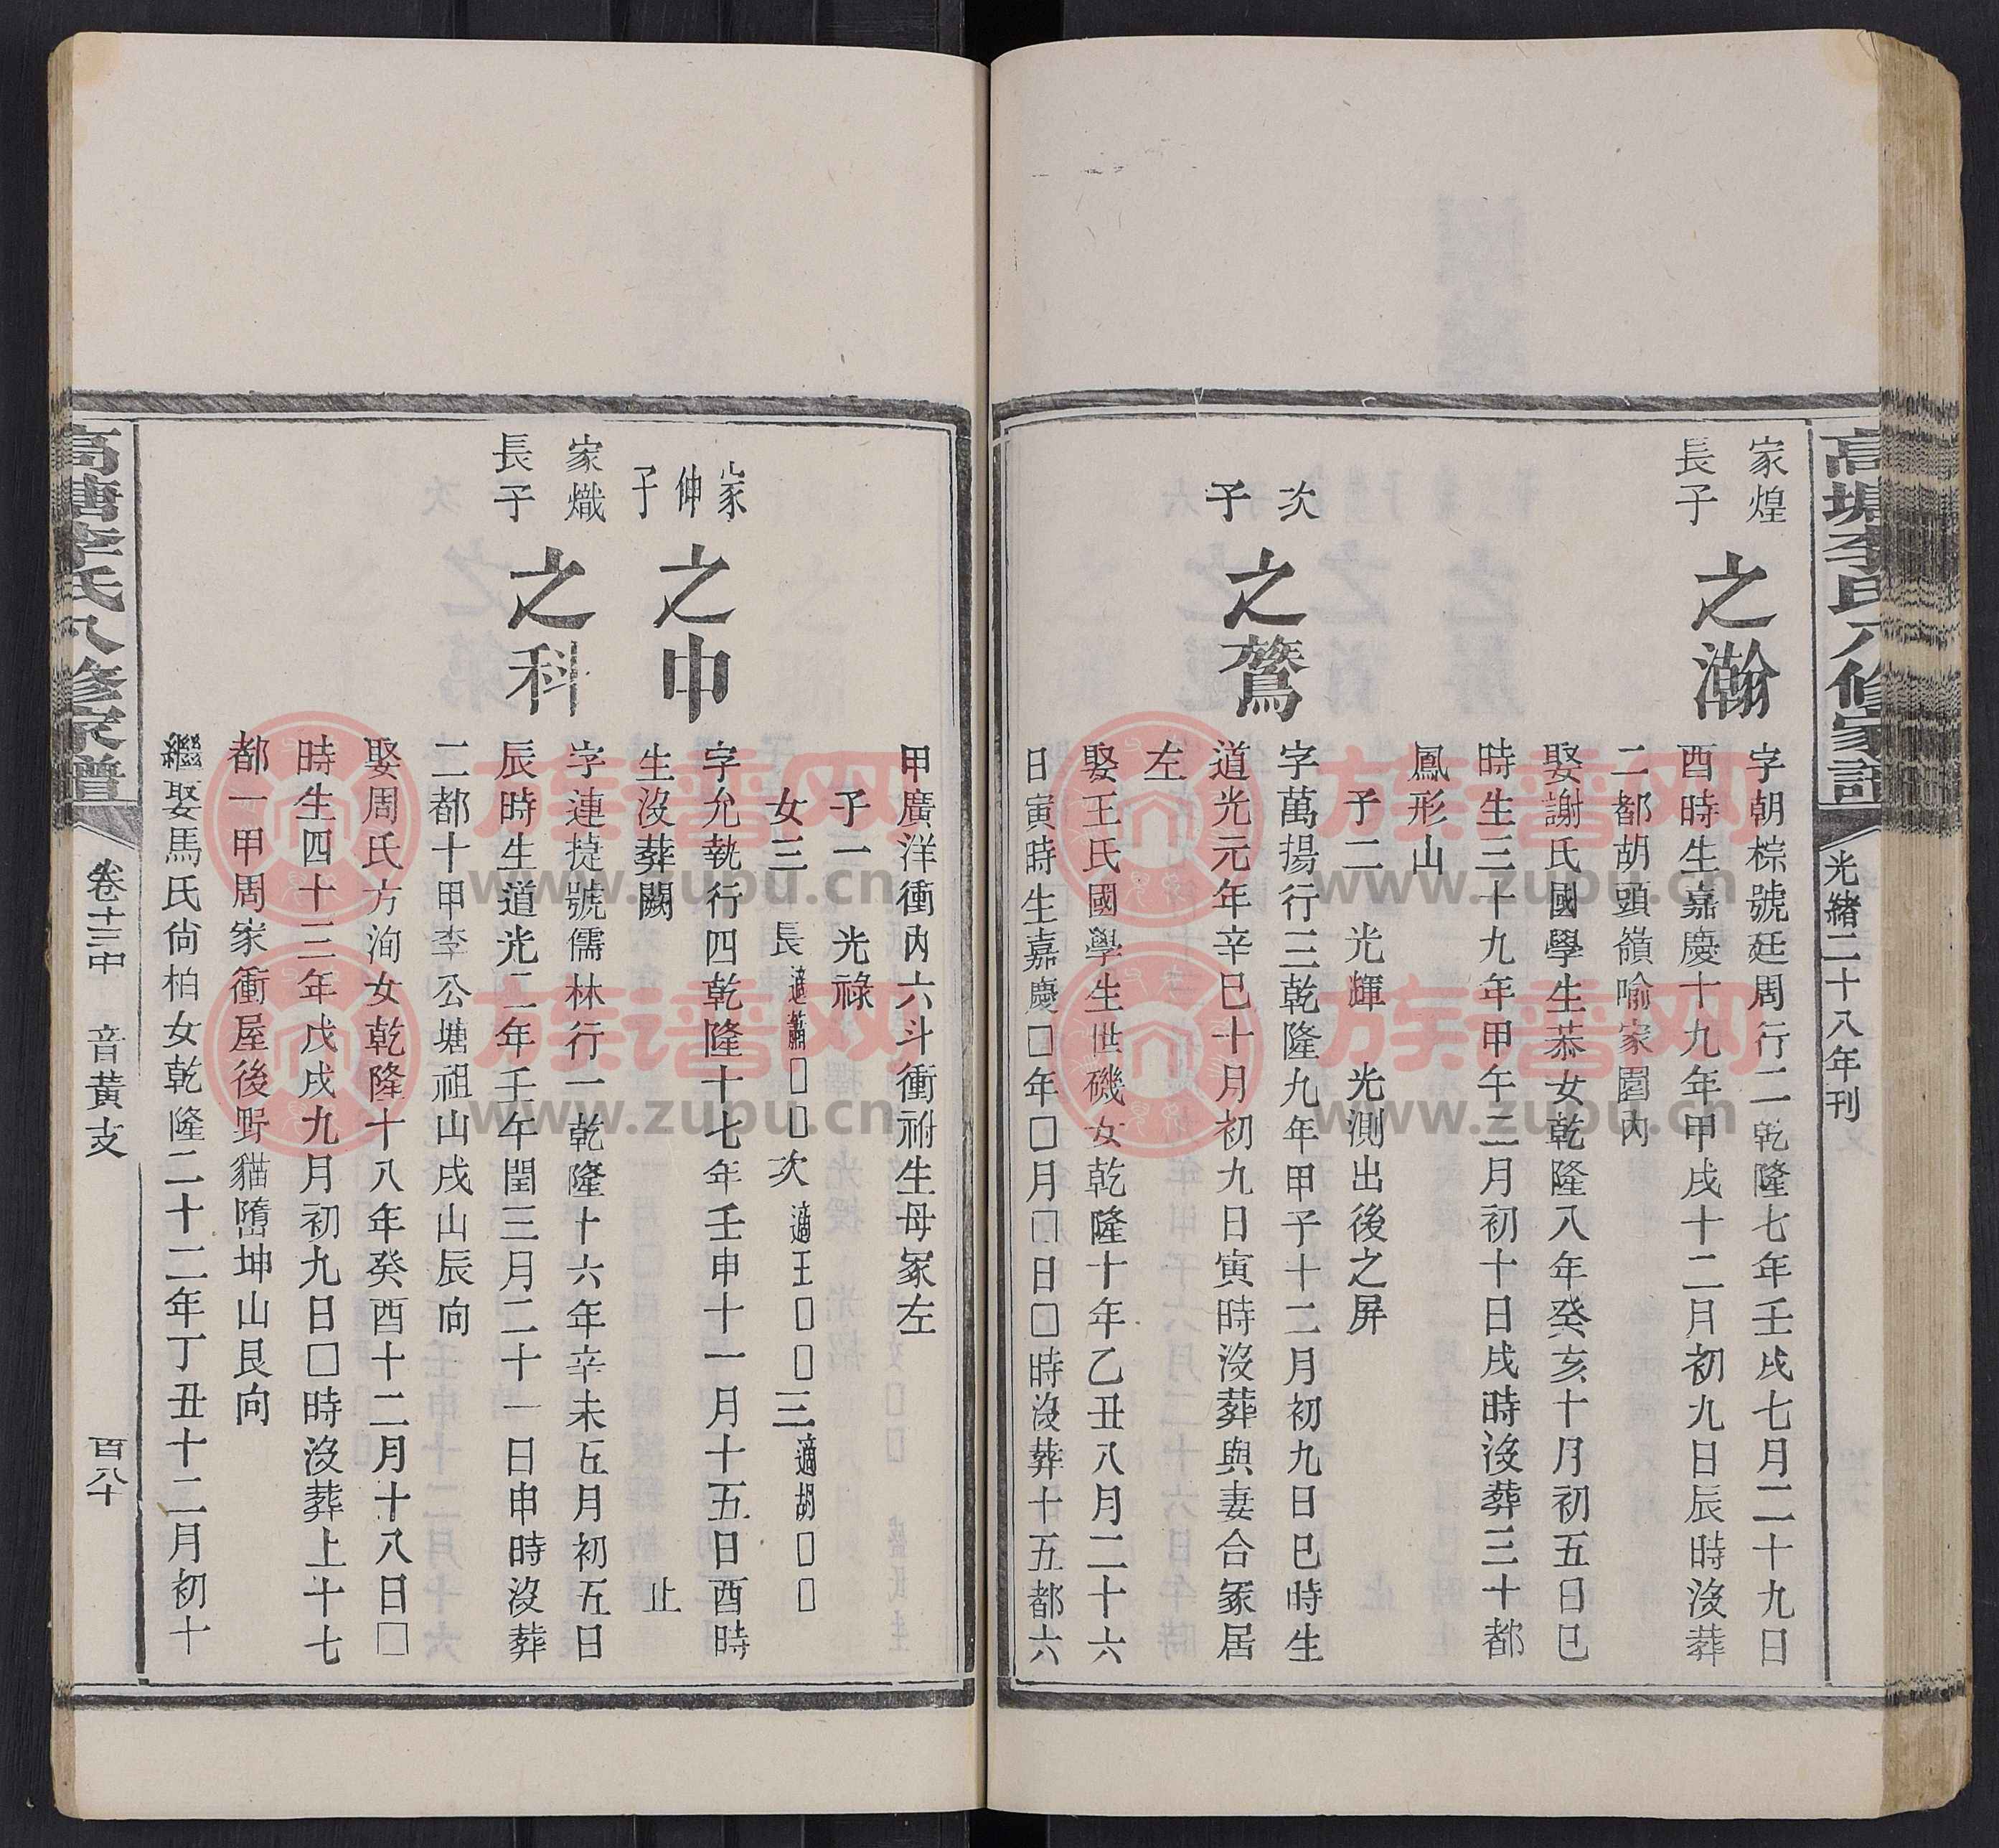 高塘李氏八修家譜
光緒二十八年刊
家煌
長子
之瀚
字朝棕號廷周行二乾隆七年壬戌七月二十九日
酉時生嘉慶十九年甲戌十二月初九日辰時沒葬
二都胡頭嶺喻家園內
娶謝氏國學生恭女乾隆八年癸亥十月初五日巳
時生三十九年甲午二月初十日戌時沒葬三十都
鳳形山
子二 光輝 光測出後之屏
次
子
之鶩
字萬揚行三乾隆九年甲子十二月初九日巳時生
道光元年辛巳十月初九日寅時沒葬與妻合冢居
左
娶王氏國學生世磯女乾隆十年乙丑八月二十六
日寅時生嘉慶□年□月□日□時沒葬十五都六
甲廣洋衝內六斗衝祔生母冢左
子一 光祿
女三 長適蕭□□次適王□□三適胡□□
家
伸
子
之中
字允執行四乾隆十七年壬申十一月十五日酉時
生沒葬闕 止
家熾
長子
之科
字連捷號儒林行一乾隆十六年辛未五月初五日
辰時生道光二年壬午閏三月二十一日申時沒葬
二都十甲李公塘祖山戌山辰向
娶周氏方洵女乾隆十八年癸酉十二月十八日□
時生四十三年戊戌九月初九日□時沒葬上十七
都一甲周家衝屋後野貓墮坤山艮向
繼娶馬氏尚柏女乾隆二十二年丁丑十二月初十
高塘李氏八修家譜
卷十三中
音黃支
百八十
族谱网
www.zupu.cn
族谱网
www.zupu.cn
族谱网
www.zupu.cn
族谱网
www.zupu.cn